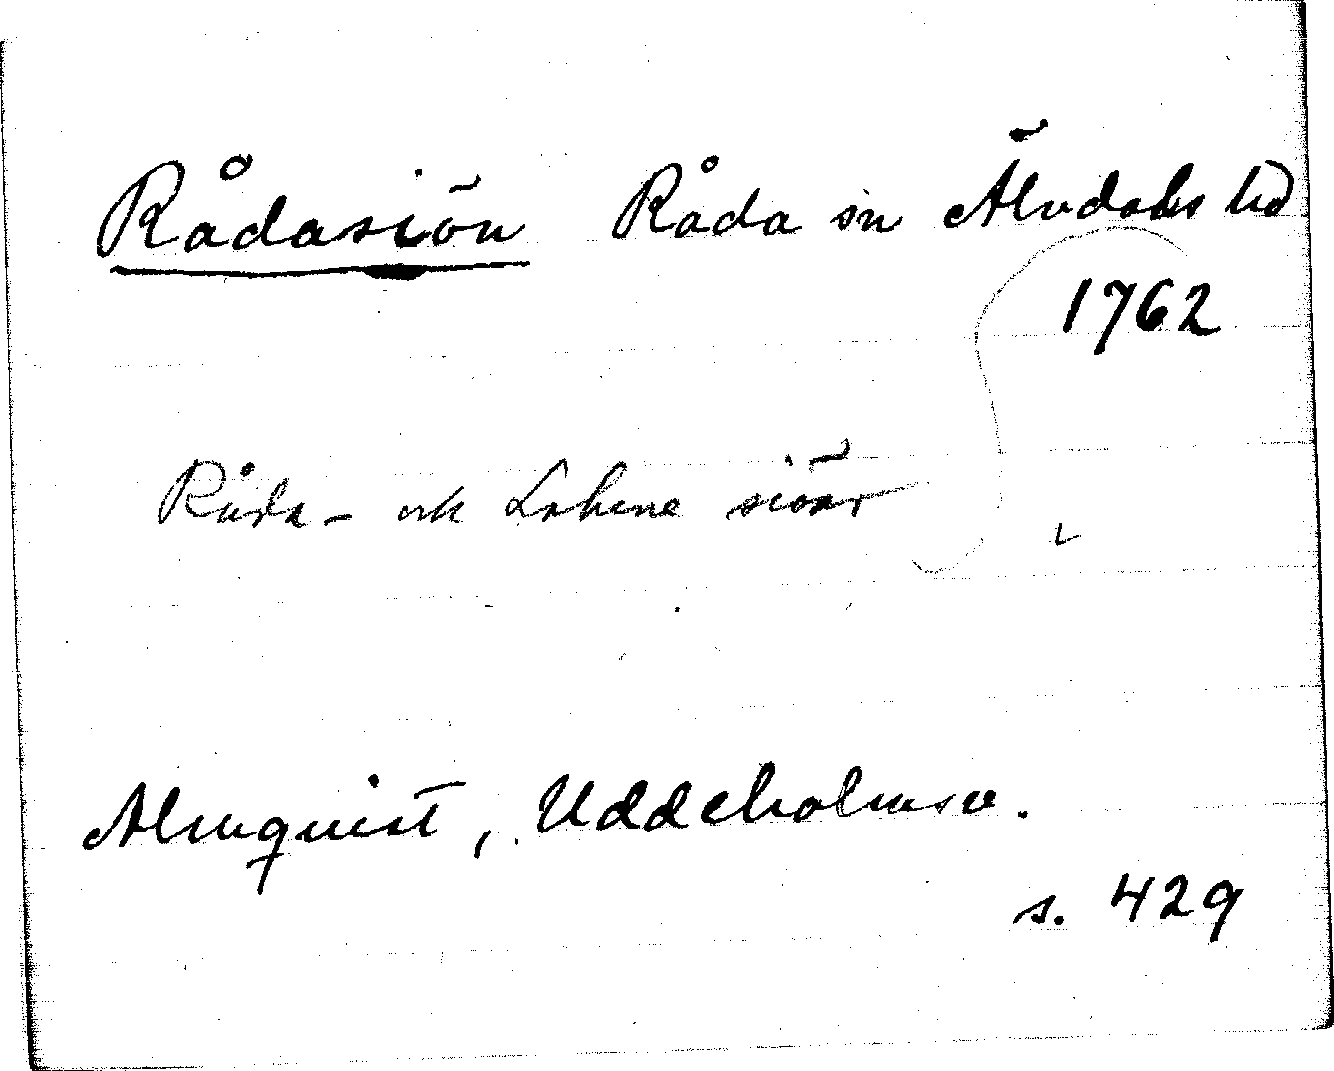 Rådasiön Råda sn Älvdals hd
1762
Råda- och Lohene siöar
Almqvist, Uddeholmsv.
s. 429